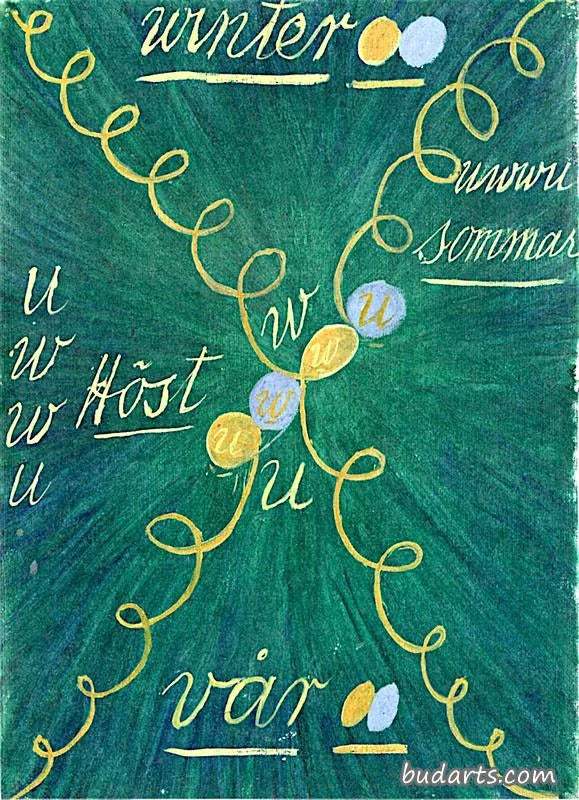 winter
uwwu
sommar
w u
w
w
u
u
w
w
u
Höst
u
vår
budarts.com